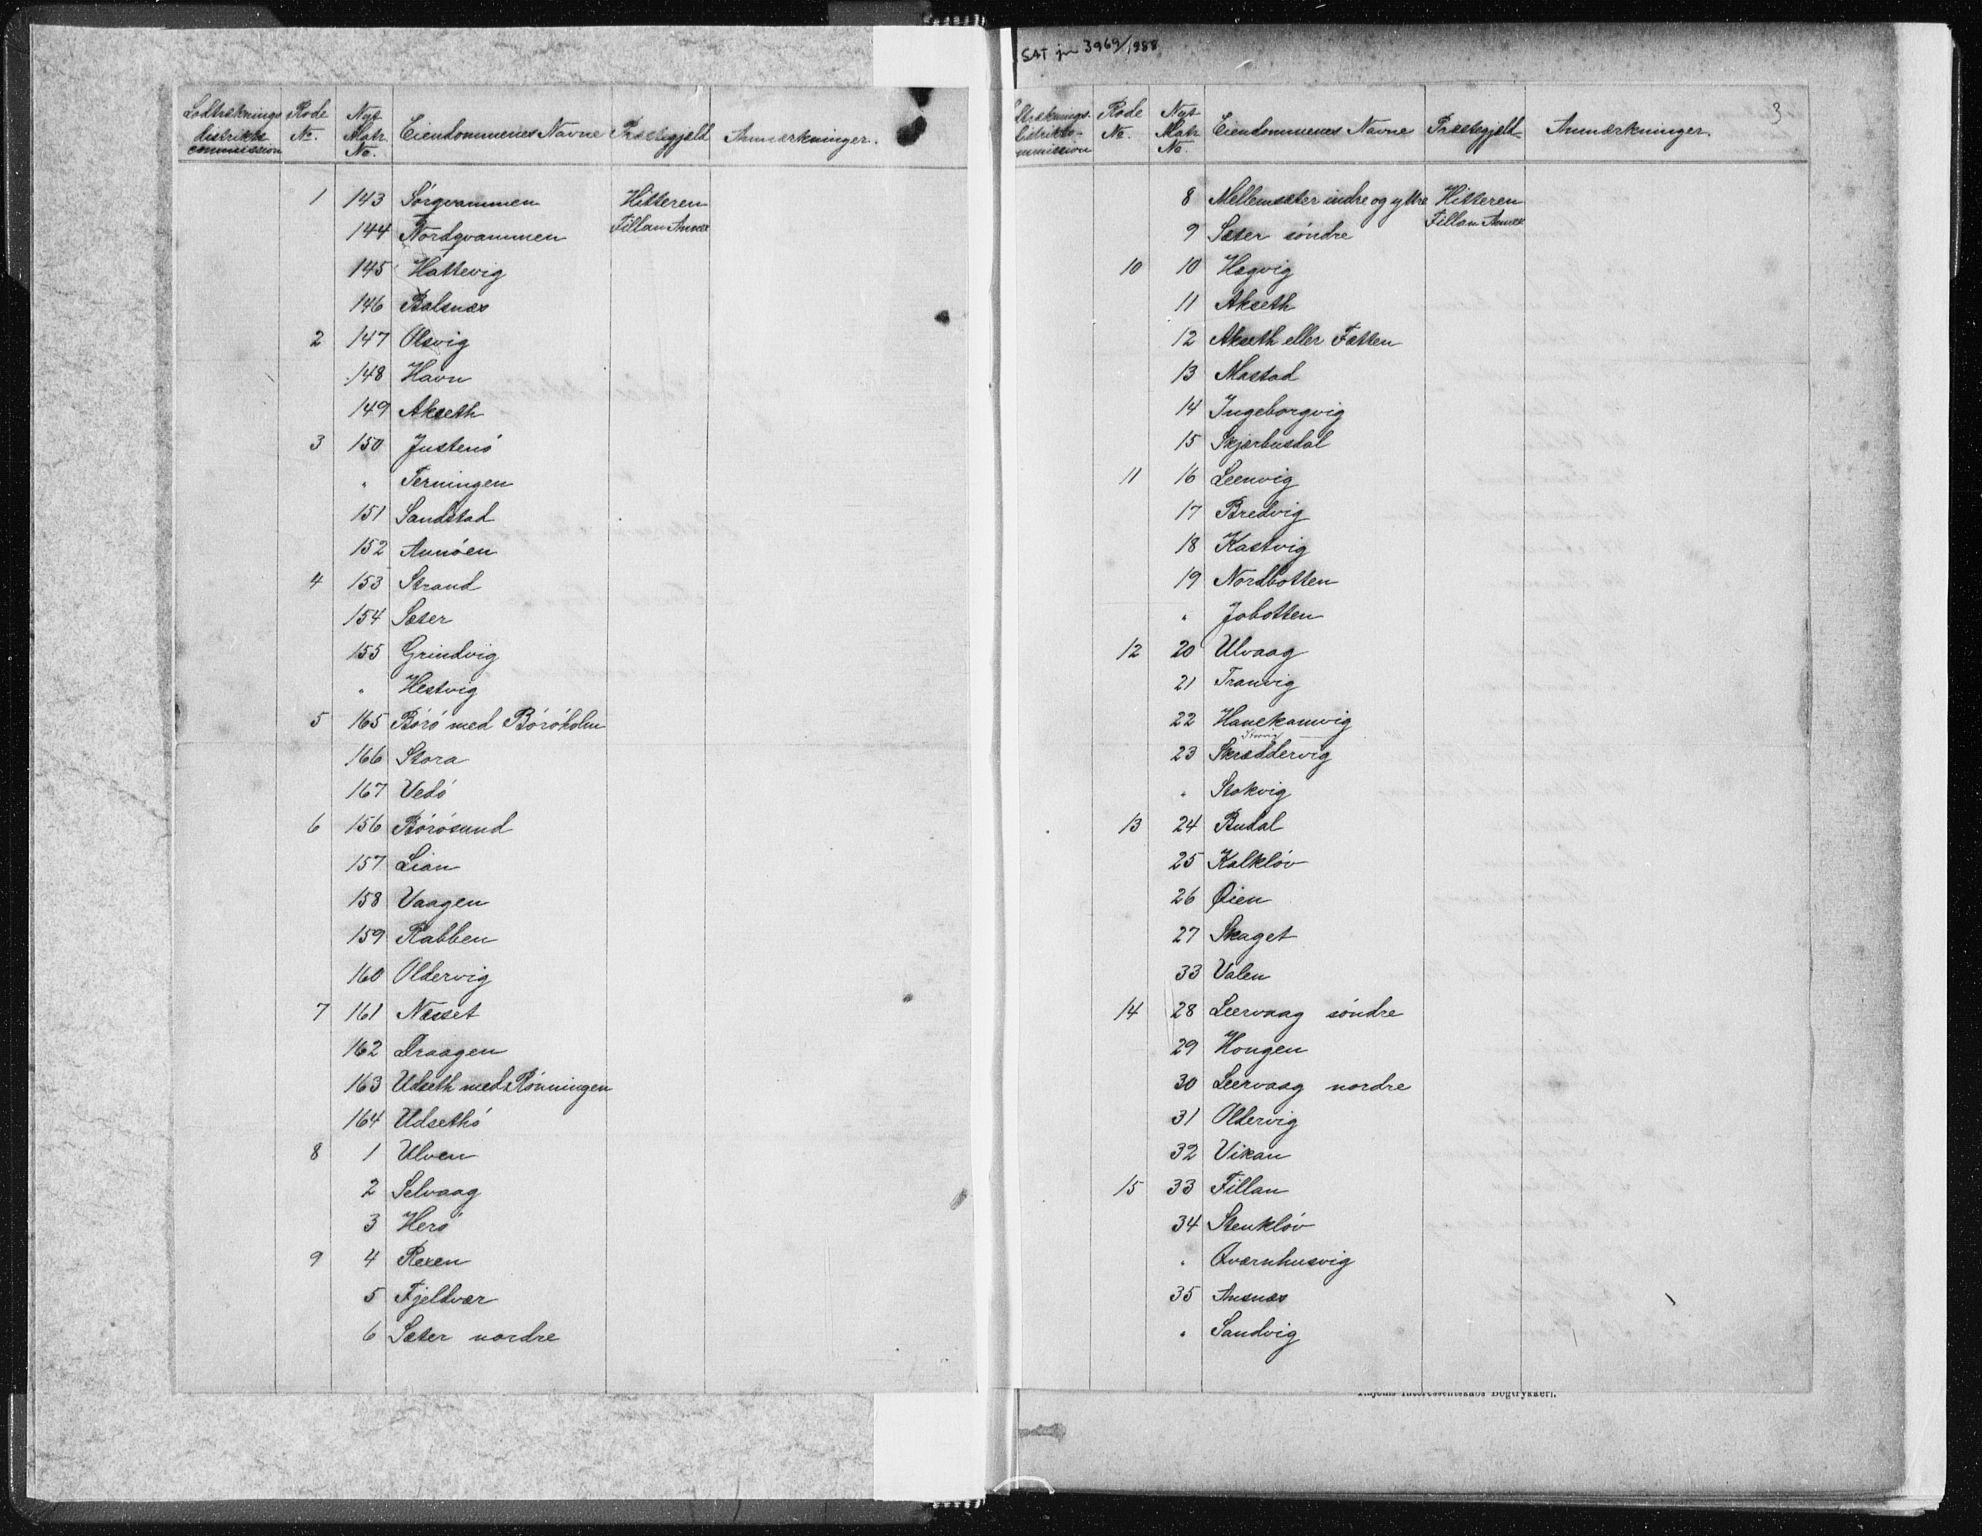 SAT jnr 3969/1988
Lodtræknings Rode Nyt
distrikts No. Matr. Eiendommenes Navne Præstegjeld Anmærkninger.
commission No.
1 143 Sørgvammen Hitteren
144 Nordgvammen Fillan Annex
145 Hattevig
146 Balsnæs
2 147 Olsvig
148 Havn
149 Akseth
3 150 Justenö
" Terningen
151 Sandstad
152 Aunöen
4 153 Strand
154 Sæter
155 Grindvig
" Hestvig
5 165 Börö med Böröholm
166 Stora
167 Vedö
6 156 Börösund
157 Lian
158 Vaagen
159 Rabben
160 Oldervig
7 161 Næsset
162 Draagen
163 Udseth med Rönningen
164 Udsethö
8 1 Ulven
2 Selvaag
3 Herö
9 4 Rexen
5 Fjeldvær
6 Sæter nordre
3
ltræknings Rode Nyt
distrikts- No. Matr. Eiendommenes Navne Præstegjeld- Anmærkninger.
mmission No.
8 Mellemsæter indre og yttre Hitteren
9 Sæter söndre Fillan Annex
10 10 Hægvig
11 Akseth
12 Akseth eller Fatten
13 Mastad
14 Ingeborgvig
15 Skjærbusdal
11 16 Leenvig
17 Bredvig
18 Kastvig
19 Nordbotten
" Jobotten
12 20 Ulvaag
21 Tranvig
22 Hanekamvig
Storvig
23 Skræddervig
" Stokvig
13 24 Budal
25 Kalklöv
26 Øien
27 Skaget
33 Valen
14 28 Leervaag söndre
29 Hongen
30 Leervaag nordre
31 Oldervig
32 Vikan
15 33 Fillan
34 Stenklöv
" Qværnhusvig
35 Ansnæs
" Sandvig
Interessentskabs Bogtrykkeri.